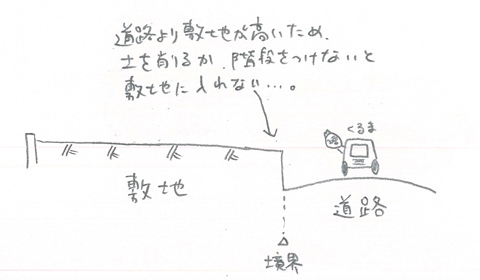 道路より敷地が高いため.
土を削るか.階段をつけないと
敷地に入れない…。
くるま
敷地
道路
境界